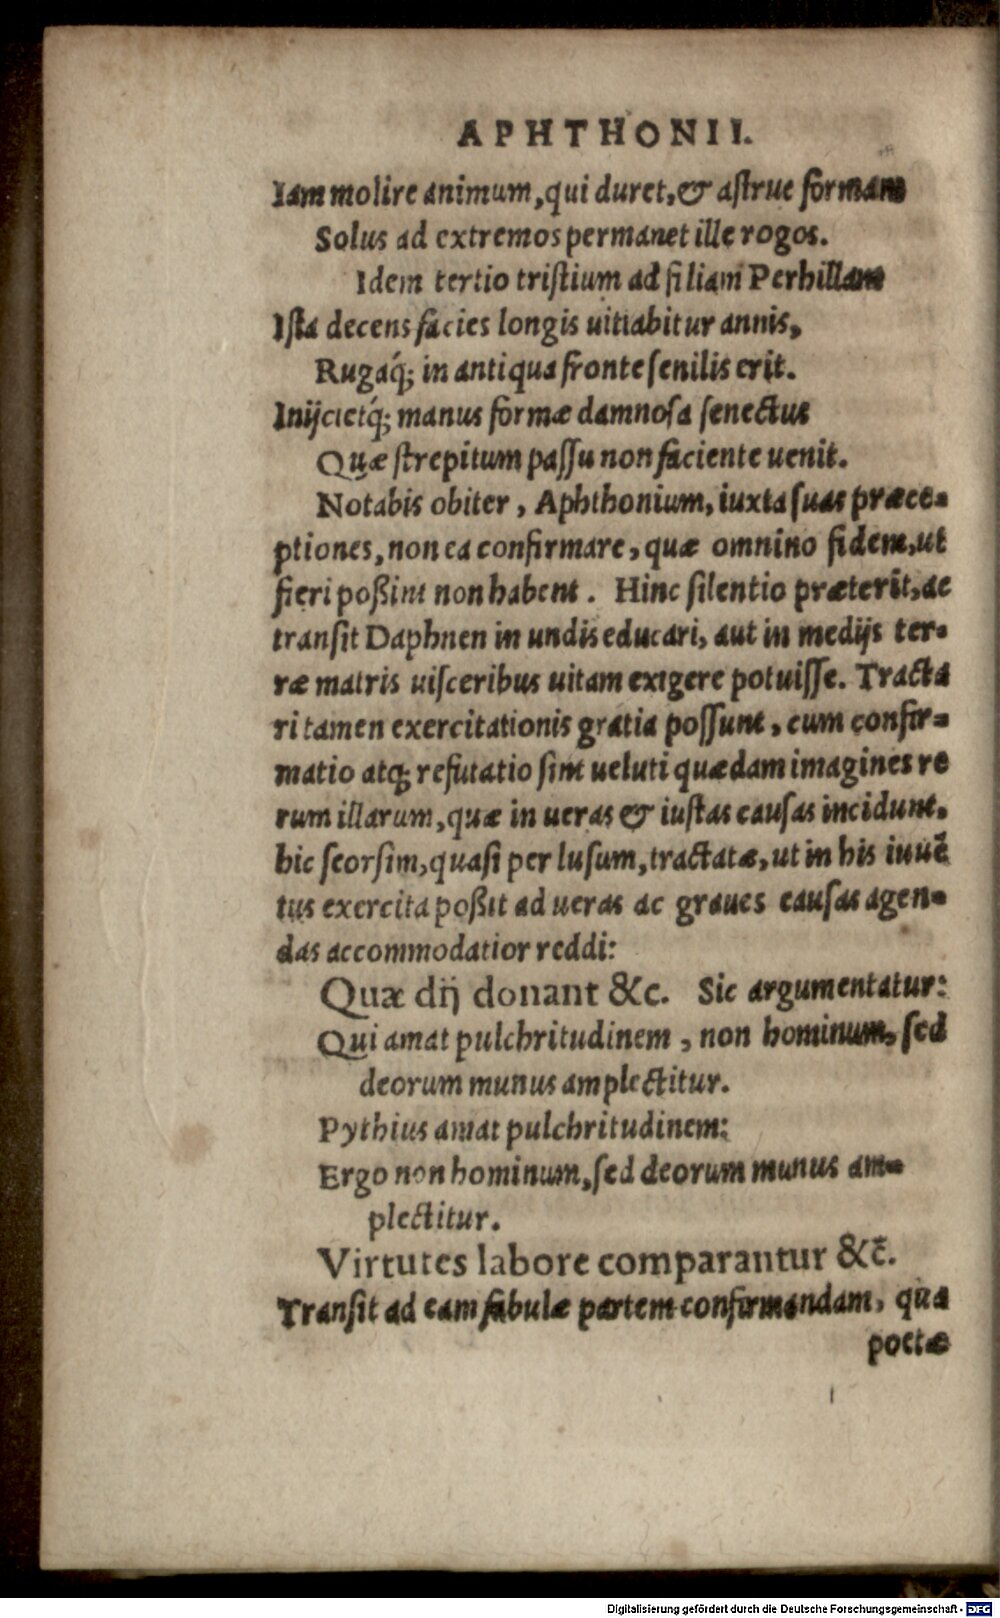 APHTHONII.
Iam molire animum, qui duret, & astrue formam
Solus ad extremos permanet ille rogos.
Idem tertio tristium ad filiam Perhillam
Ista decens facies longis uitiabitur annis,
Rugaq́; in antiqua fronte senilis erit.
Inijcietq́; manus formæ damnosa senectus
Quæ strepitum passu non faciente uenit.
Notabis obiter, Aphthonium, iuxta suas præce-
ptiones, non ea confirmare, quæ omnino fidem, ut
fieri poßint non habent. Hinc silentio præterit, ac
transit Daphnen in undis educari, aut in medijs ter-
ræ matris uisceribus uitam exigere potuisse. Tracta
ri tamen exercitationis gratia possunt, cum confir-
matio atq; refutatio sint ueluti quædam imagines re
rum illarum, quæ in ueras & iustas causas incidunt,
hic seorsim, quasi per lusum, tractatæ, ut in his iuuē
tus exercita poßit ad ueras ac graues causas agen-
das accommodatior reddi:
Quæ dij donant &c. Sic argumentatur:
Qui amat pulchritudinem, non hominum, sed
deorum munus amplectitur.
Pythius amat pulchritudinem:
Ergo non hominum, sed deorum munus am-
plectitur.
Virtutes labore comparantur &c̄.
Transit ad eam fabulæ partem confirmandam, qua
poetæ
Digitalisierung gefördert durch die Deutsche Forschungsgemeinschaft - DFG